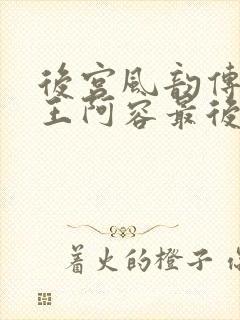 後宮風韵傳
王阿容最後
着火的橙子